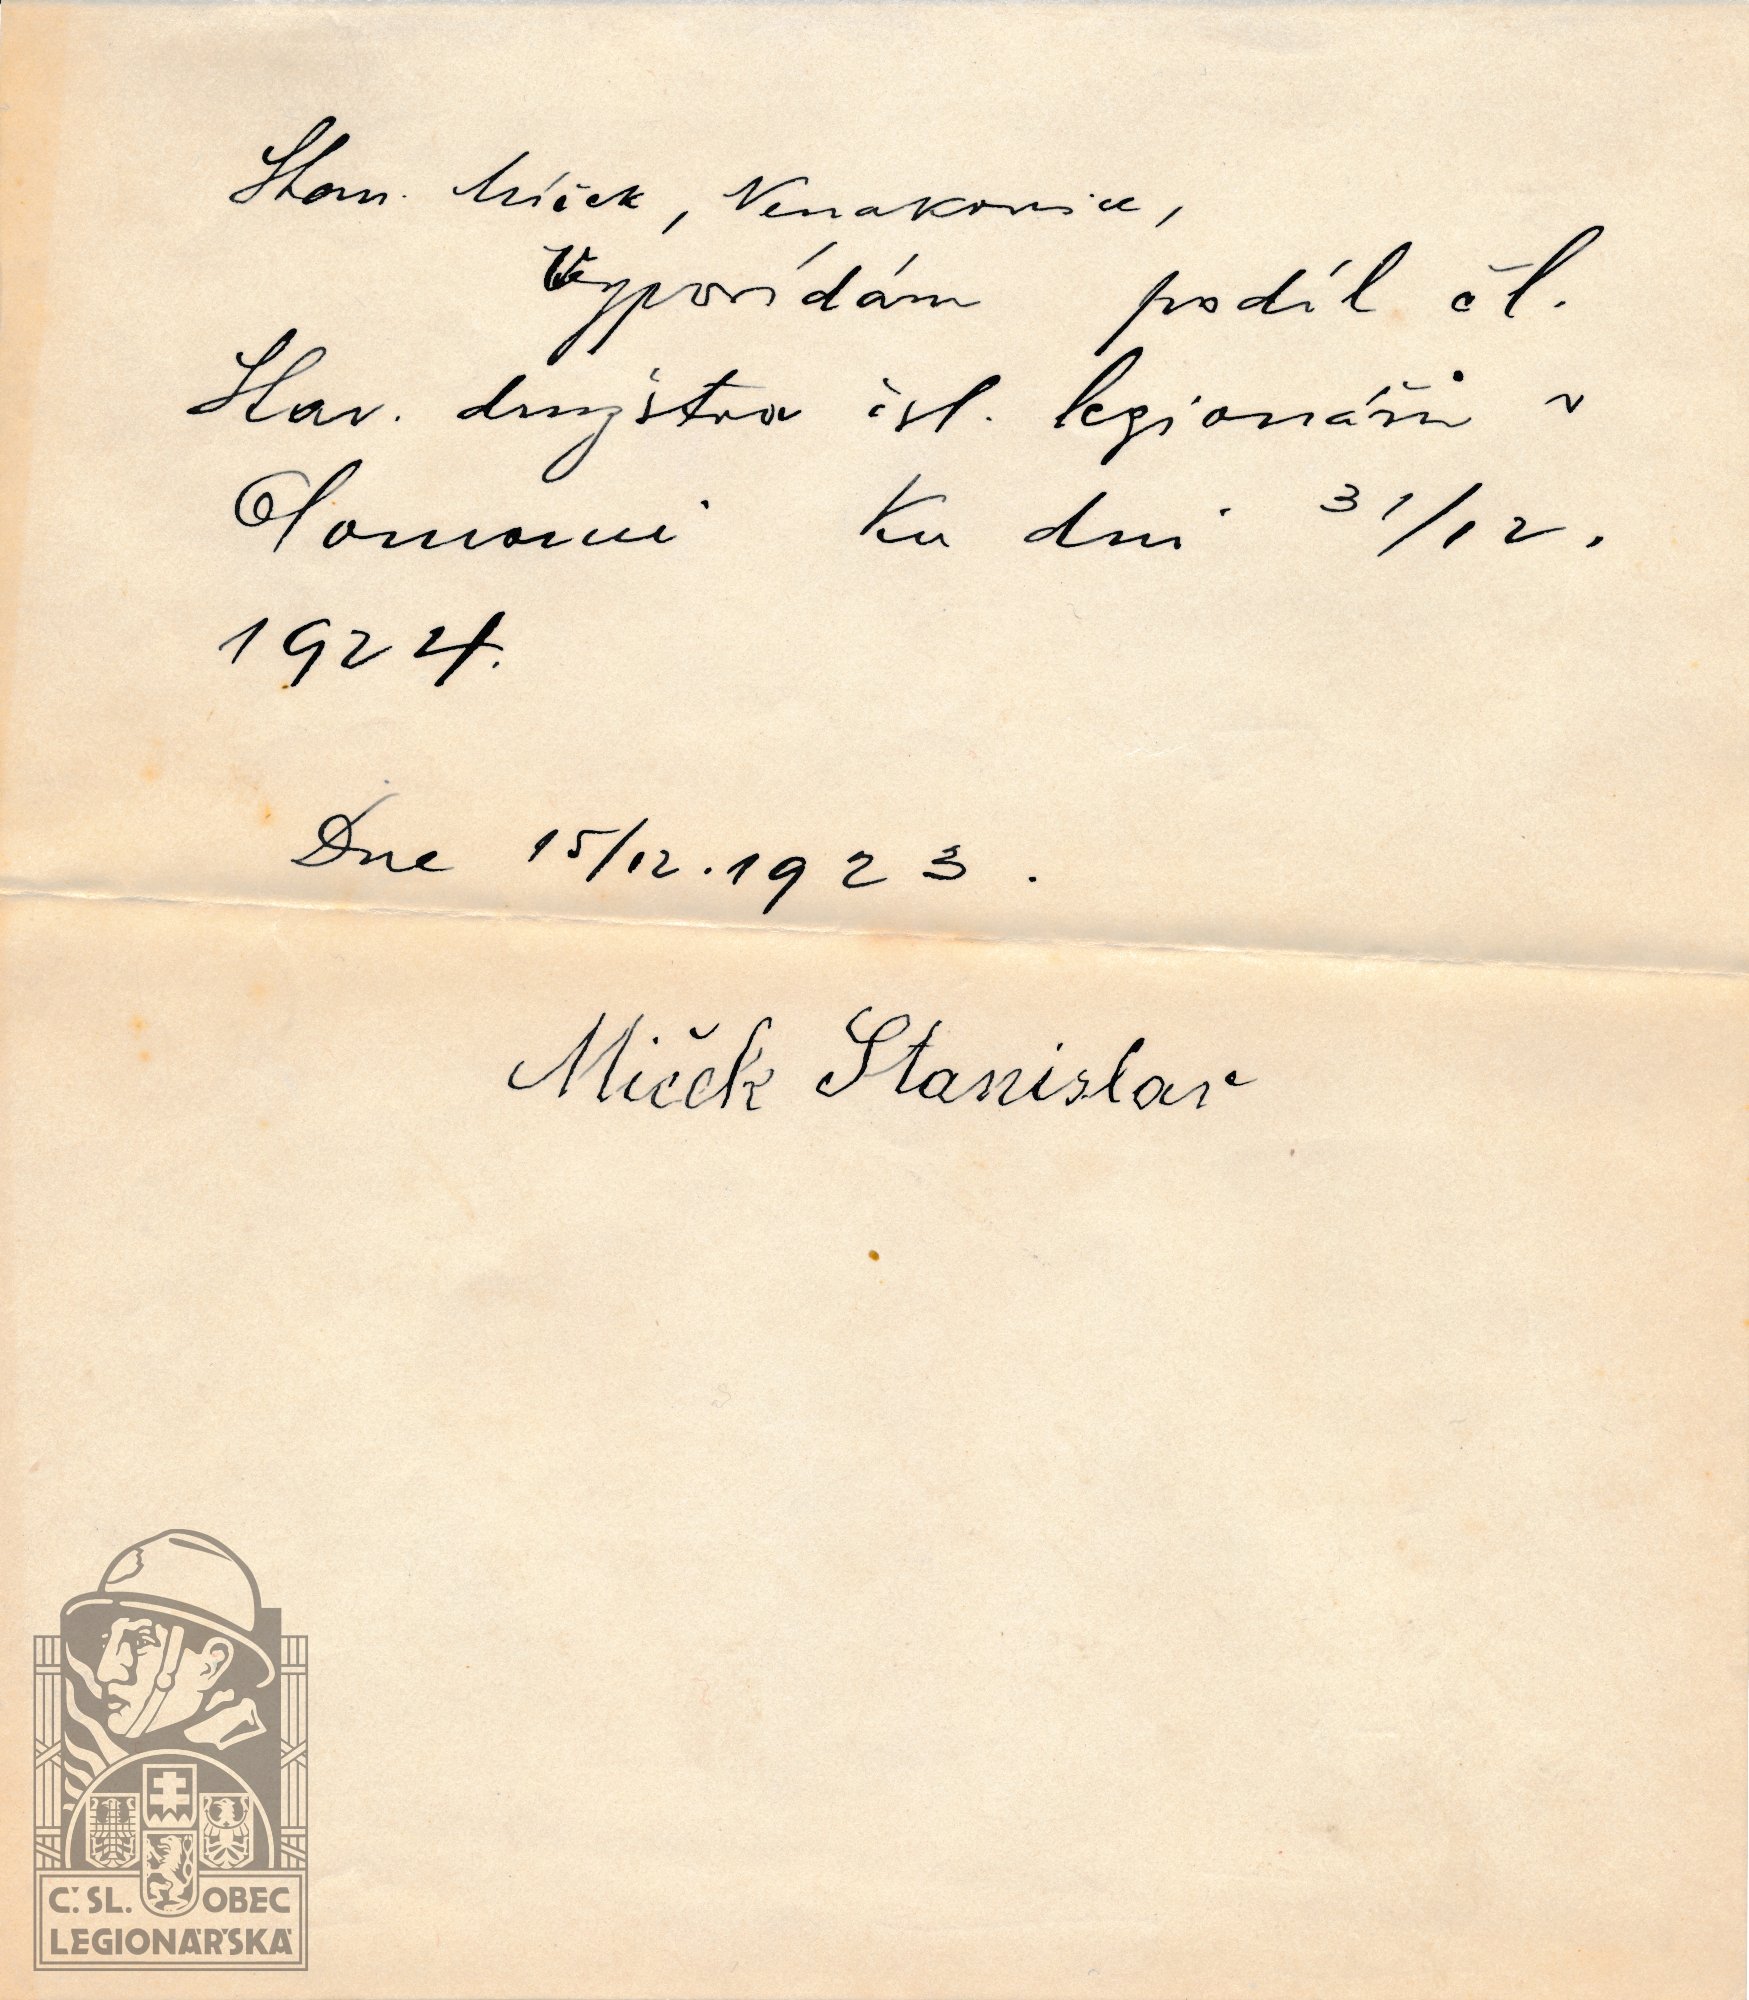 Stan. Míček, Nenakonice,
Vypovídám podíl čl.
Stav. družstva čsl. legionářů v
Olomouci Ku dni 31/12.
1924.
Dne 15/12.1923.
Míček Stanislav
Č. SL. OBEC
LEGIONÁŘSKÁ